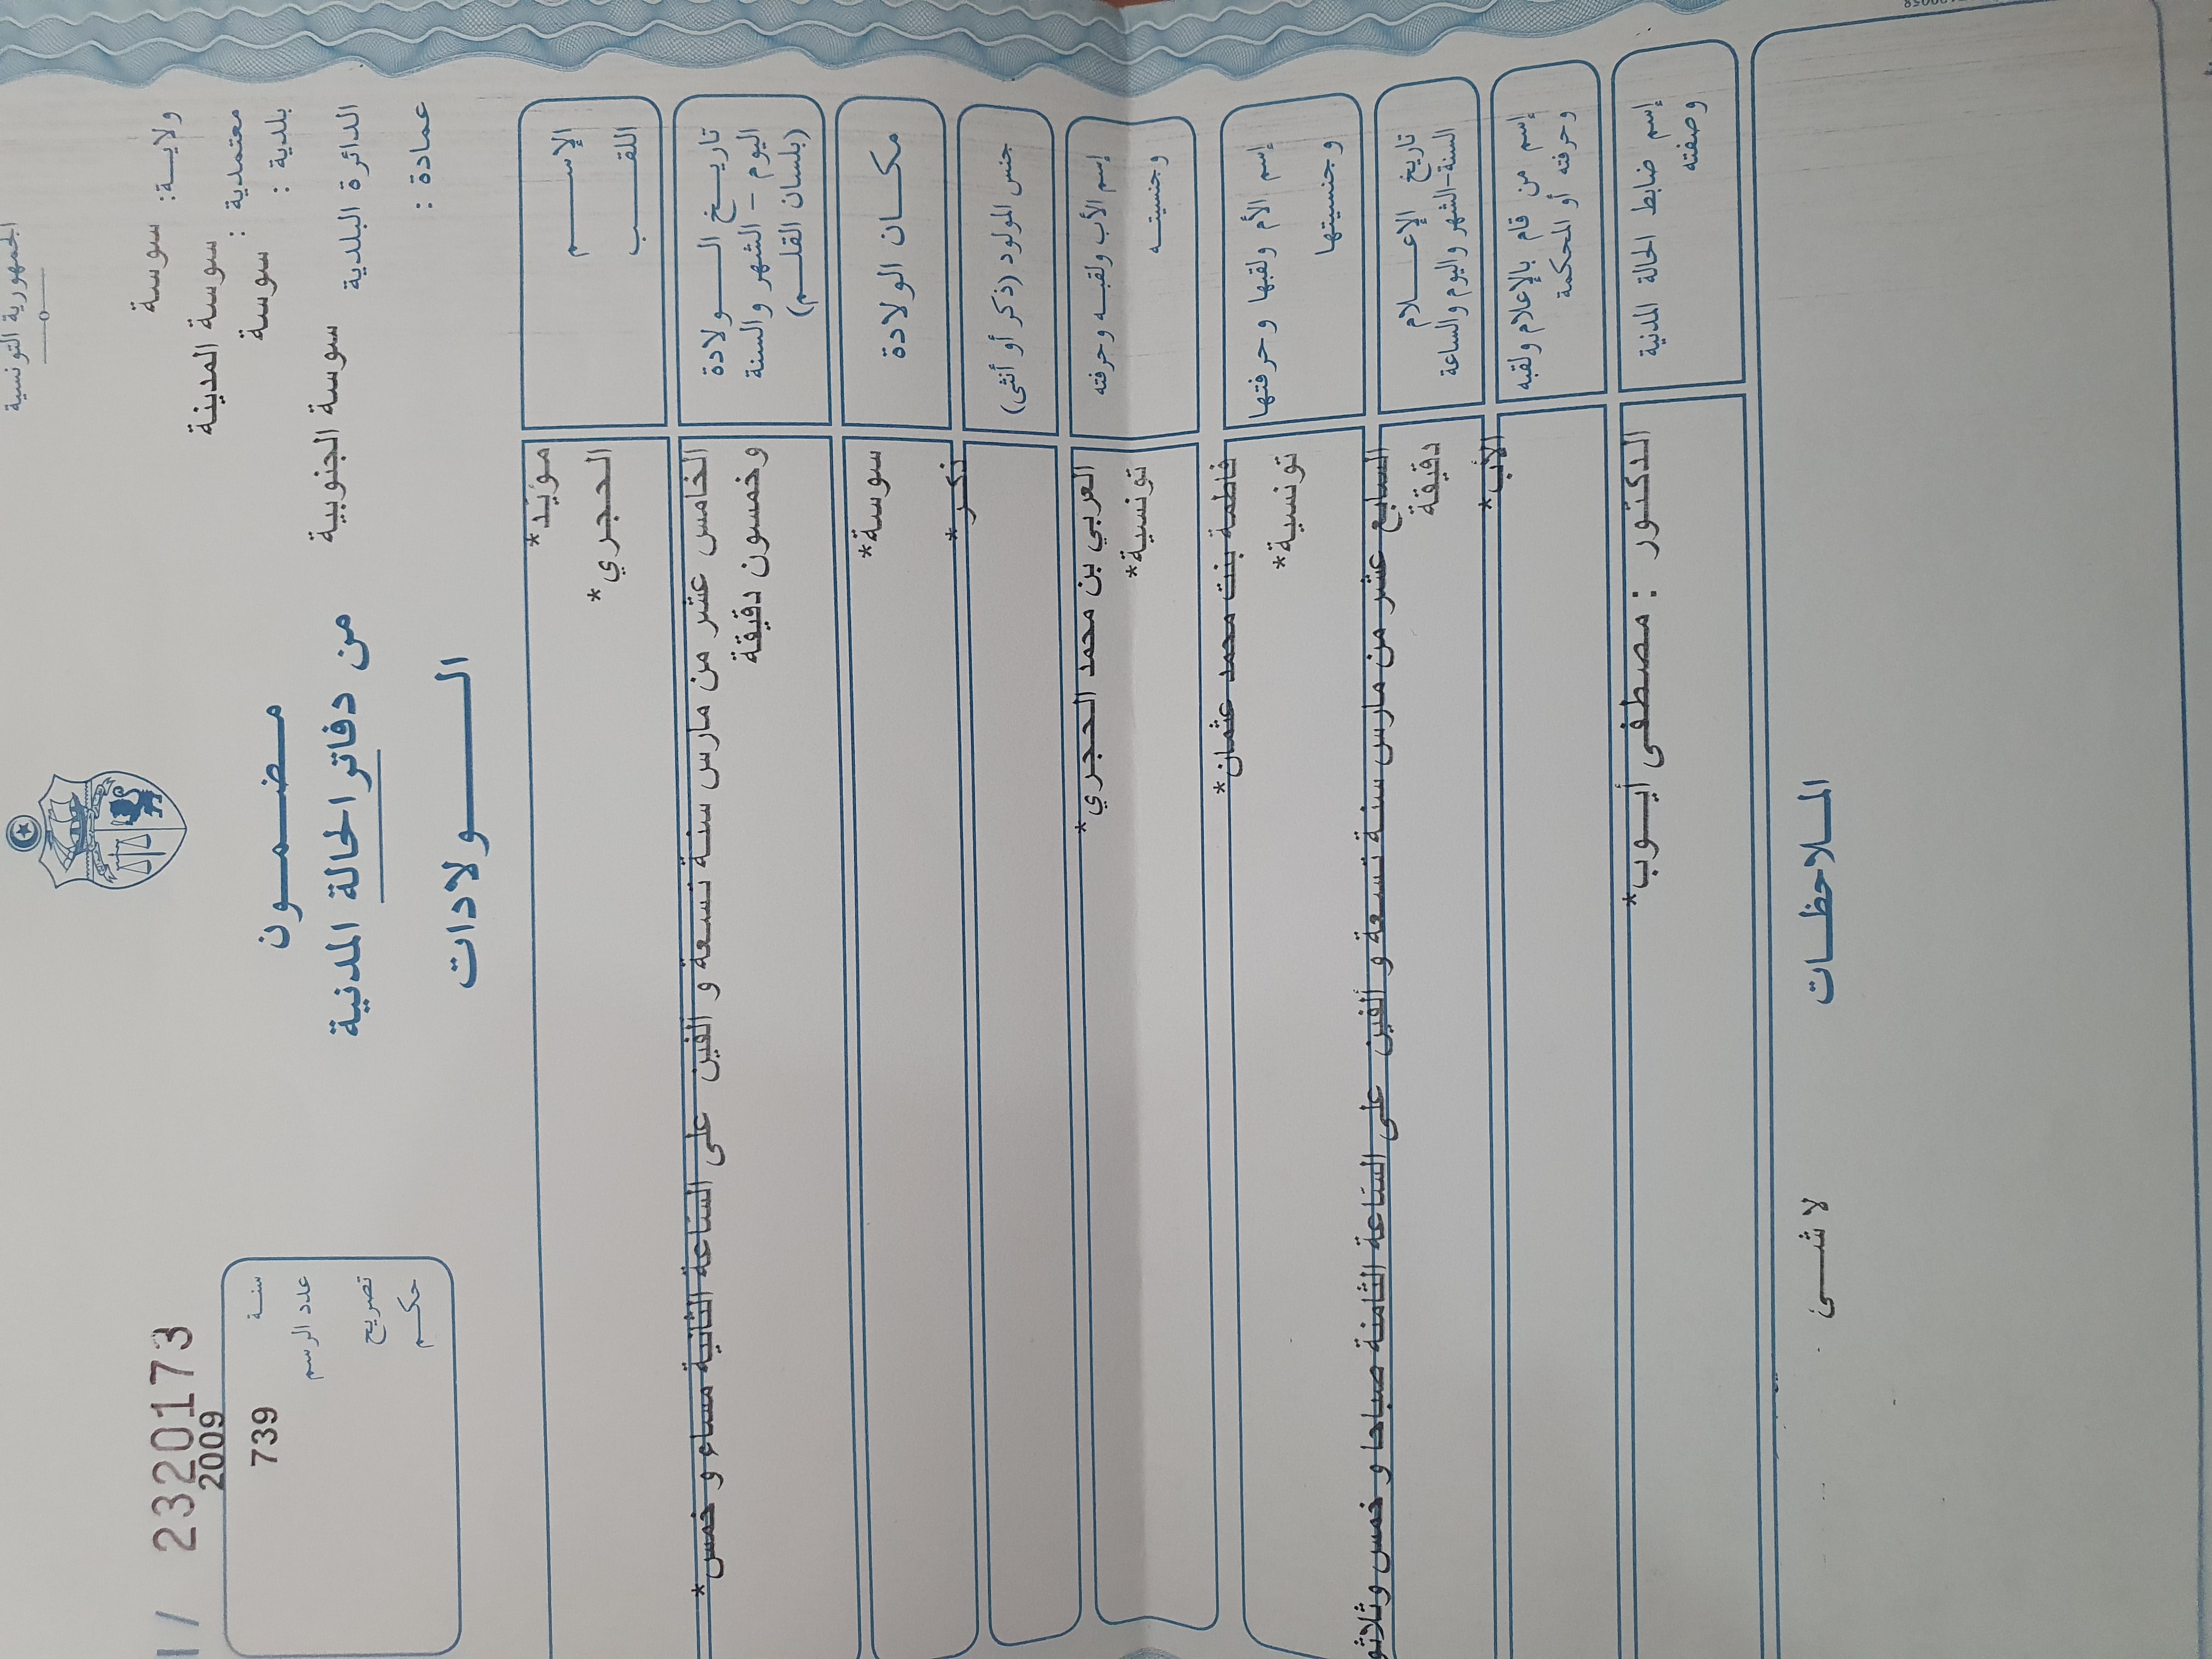 الجمهورية التونسية
ولايـــة: سوسة
معتمدية : سوسة المدينة
بلدية : سوسة
الدائرة البلدية سوسة الجنوبية
عمادة :
مـضـمـــون
من دفاتر الحالة المدنية
الـــــولادات
2320173
2009
سنـة
739
عدد الرسم
تصريح
حكـم
الإســـم
مؤيّد*
اللقـــب
الحجري*
تاريـــخ الـــولادة
اليوم - الشهر والسنة
(بلسان القلـــم)
الخامس عشر من مارس سنة تسعة و ألفين على السّاعة الثّانية مساء و خمس*
وخمسون دقيقة
مكــان الولادة
سوسة*
جنس المولود (ذكر أو أنثى)
ذكر*
إسم الأب ولقبـه وحرفته
العربي بن محمد الحجري*
وجنسيتــه
تونسية*
إسم الأم ولقبها وحرفتها
فاطمة بنت محمد عثمان*
وجنسيتها
تونسية*
تاريخ الإعــــلام
السنة-الشهر واليوم والساعة
السابع عشر من مارس سنة تسعة و ألفين على السّاعة الثّامنة صباحا و خمس وثلاثو
دقيقة
إسم من قام بالإعلام ولقبه
وحرفته أو المحكمة
الأب*
إسم ضابط الحالة المدنية
وصفته
الدكتور : مصطفى أيـوب*
المـلاحظـات
لا شـــئ